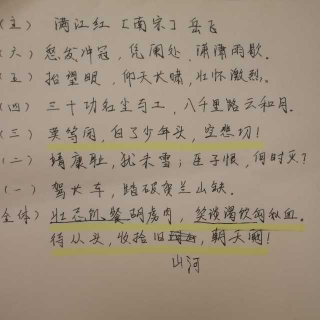 (主) 满江红 [南宋] 岳飞
(六) 怒发冲冠，凭阑处，潇潇雨歇。
(五) 抬望眼，仰天长啸，壮怀激烈。
(四) 三十功名尘与土，八千里路云和月。
(三) 莫等闲，白了少年头，空悲切！
(二) 靖康耻，犹未雪；臣子恨，何时灭？
(一) 驾长车，踏破贺兰山缺。
全体) 壮志饥餐胡虏肉，笑谈渴饮匈奴血。
待从头，收拾旧，朝天阙！
山河